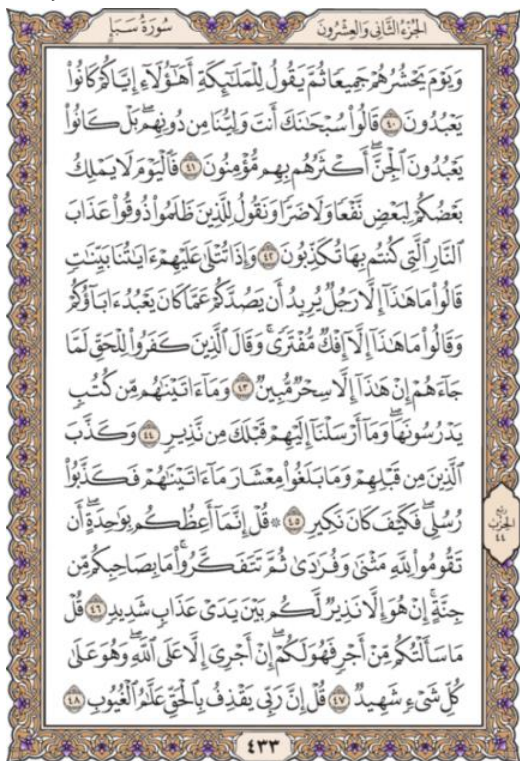 الجُزْءُ الثَّانِي وَالعِشْرُونَ
سُورَةُ سَبَإٍ
وَيَوْمَ يَحْشُرُهُمْ جَمِيعًا ثُمَّ يَقُولُ لِلْمَلَـٰٓئِكَةِ أَهَـٰٓؤُلَآءِ إِيَّاكُمْ كَانُوا۟
يَعْبُدُونَ ٤٠ قَالُوا۟ سُبْحَـٰنَكَ أَنتَ وَلِيُّنَا مِن دُونِهِم ۖ بَلْ كَانُوا۟
يَعْبُدُونَ ٱلْجِنَّ ۖ أَكْثَرُهُم بِهِم مُّؤْمِنُونَ ٤١ فَٱلْيَوْمَ لَا يَمْلِكُ
بَعْضُكُمْ لِبَعْضٍ نَّفْعًا وَلَا ضَرًّا وَنَقُولُ لِلَّذِينَ ظَلَمُوا۟ ذُوقُوا۟ عَذَابَ
ٱلنَّارِ ٱلَّتِى كُنتُم بِهَا تُكَذِّبُونَ ٤٢ وَإِذَا تُتْلَىٰ عَلَيْهِمْ ءَايَـٰتُنَا بَيِّنَـٰتٍ
قَالُوا۟ مَا هَـٰذَآ إِلَّا رَجُلٌ يُرِيدُ أَن يَصُدَّكُمْ عَمَّا كَانَ يَعْبُدُ ءَابَآؤُكُمْ
وَقَالُوا۟ مَا هَـٰذَآ إِلَّآ إِفْكٌ مُّفْتَرًى ۚ وَقَالَ ٱلَّذِينَ كَفَرُوا۟ لِلْحَقِّ لَمَّا
جَآءَهُمْ إِنْ هَـٰذَآ إِلَّا سِحْرٌ مُّبِينٌ ٤٣ وَمَآ ءَاتَيْنَـٰهُم مِّن كُتُبٍ
يَدْرُسُونَهَا ۖ وَمَآ أَرْسَلْنَآ إِلَيْهِمْ قَبْلَكَ مِن نَّذِيرٍ ٤٤ وَكَذَّبَ
ٱلَّذِينَ مِن قَبْلِهِمْ وَمَا بَلَغُوا۟ مِعْشَارَ مَآ ءَاتَيْنَـٰهُمْ فَكَذَّبُوا۟
رُسُلِى ۖ فَكَيْفَ كَانَ نَكِيرِ ٤٥ ۞ قُلْ إِنَّمَآ أَعِظُكُم بِوَٰحِدَةٍ ۖ أَن
تَقُومُوا۟ لِلَّهِ مَثْنَىٰ وَفُرَٰدَىٰ ثُمَّ تَتَفَكَّرُوا۟ ۚ مَا بِصَاحِبِكُم مِّن
جِنَّةٍ ۚ إِنْ هُوَ إِلَّا نَذِيرٌ لَّكُم بَيْنَ يَدَىْ عَذَابٍ شَدِيدٍ ٤٦ قُلْ
مَا سَأَلْتُكُم مِّنْ أَجْرٍ فَهُوَ لَكُمْ ۖ إِنْ أَجْرِىَ إِلَّا عَلَى ٱللَّهِ ۖ وَهُوَ عَلَىٰ
كُلِّ شَىْءٍ شَهِيدٌ ٤٧ قُلْ إِنَّ رَبِّى يَقْذِفُ بِٱلْحَقِّ عَلَّـٰمُ ٱلْغُيُوبِ ٤٨
ربع
الحزب
٤٤
٤٣٣